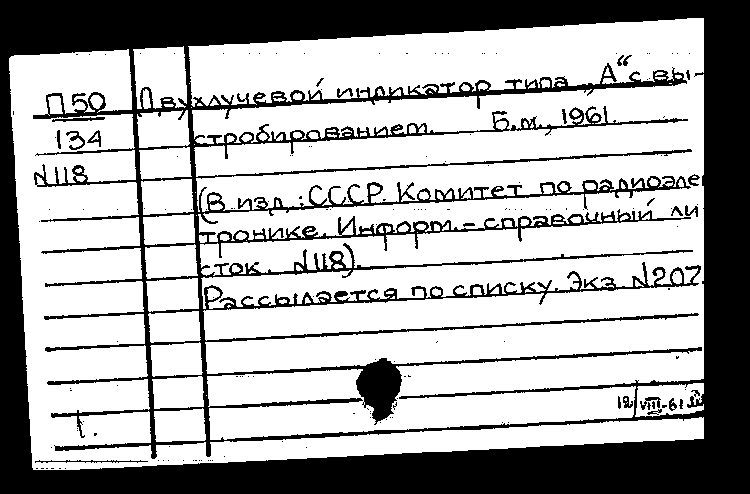 П 50 Двухлучевой индикатор типа „А“ с вы-
134 стробированием. Б.м., 1961.
N118
(В изд.: СССР. Комитет по радиоэле
тронике. Информ.-справочный ли
сток. N118).
Рассылается по списку. Экз. N207.
12/VIII-61
1.